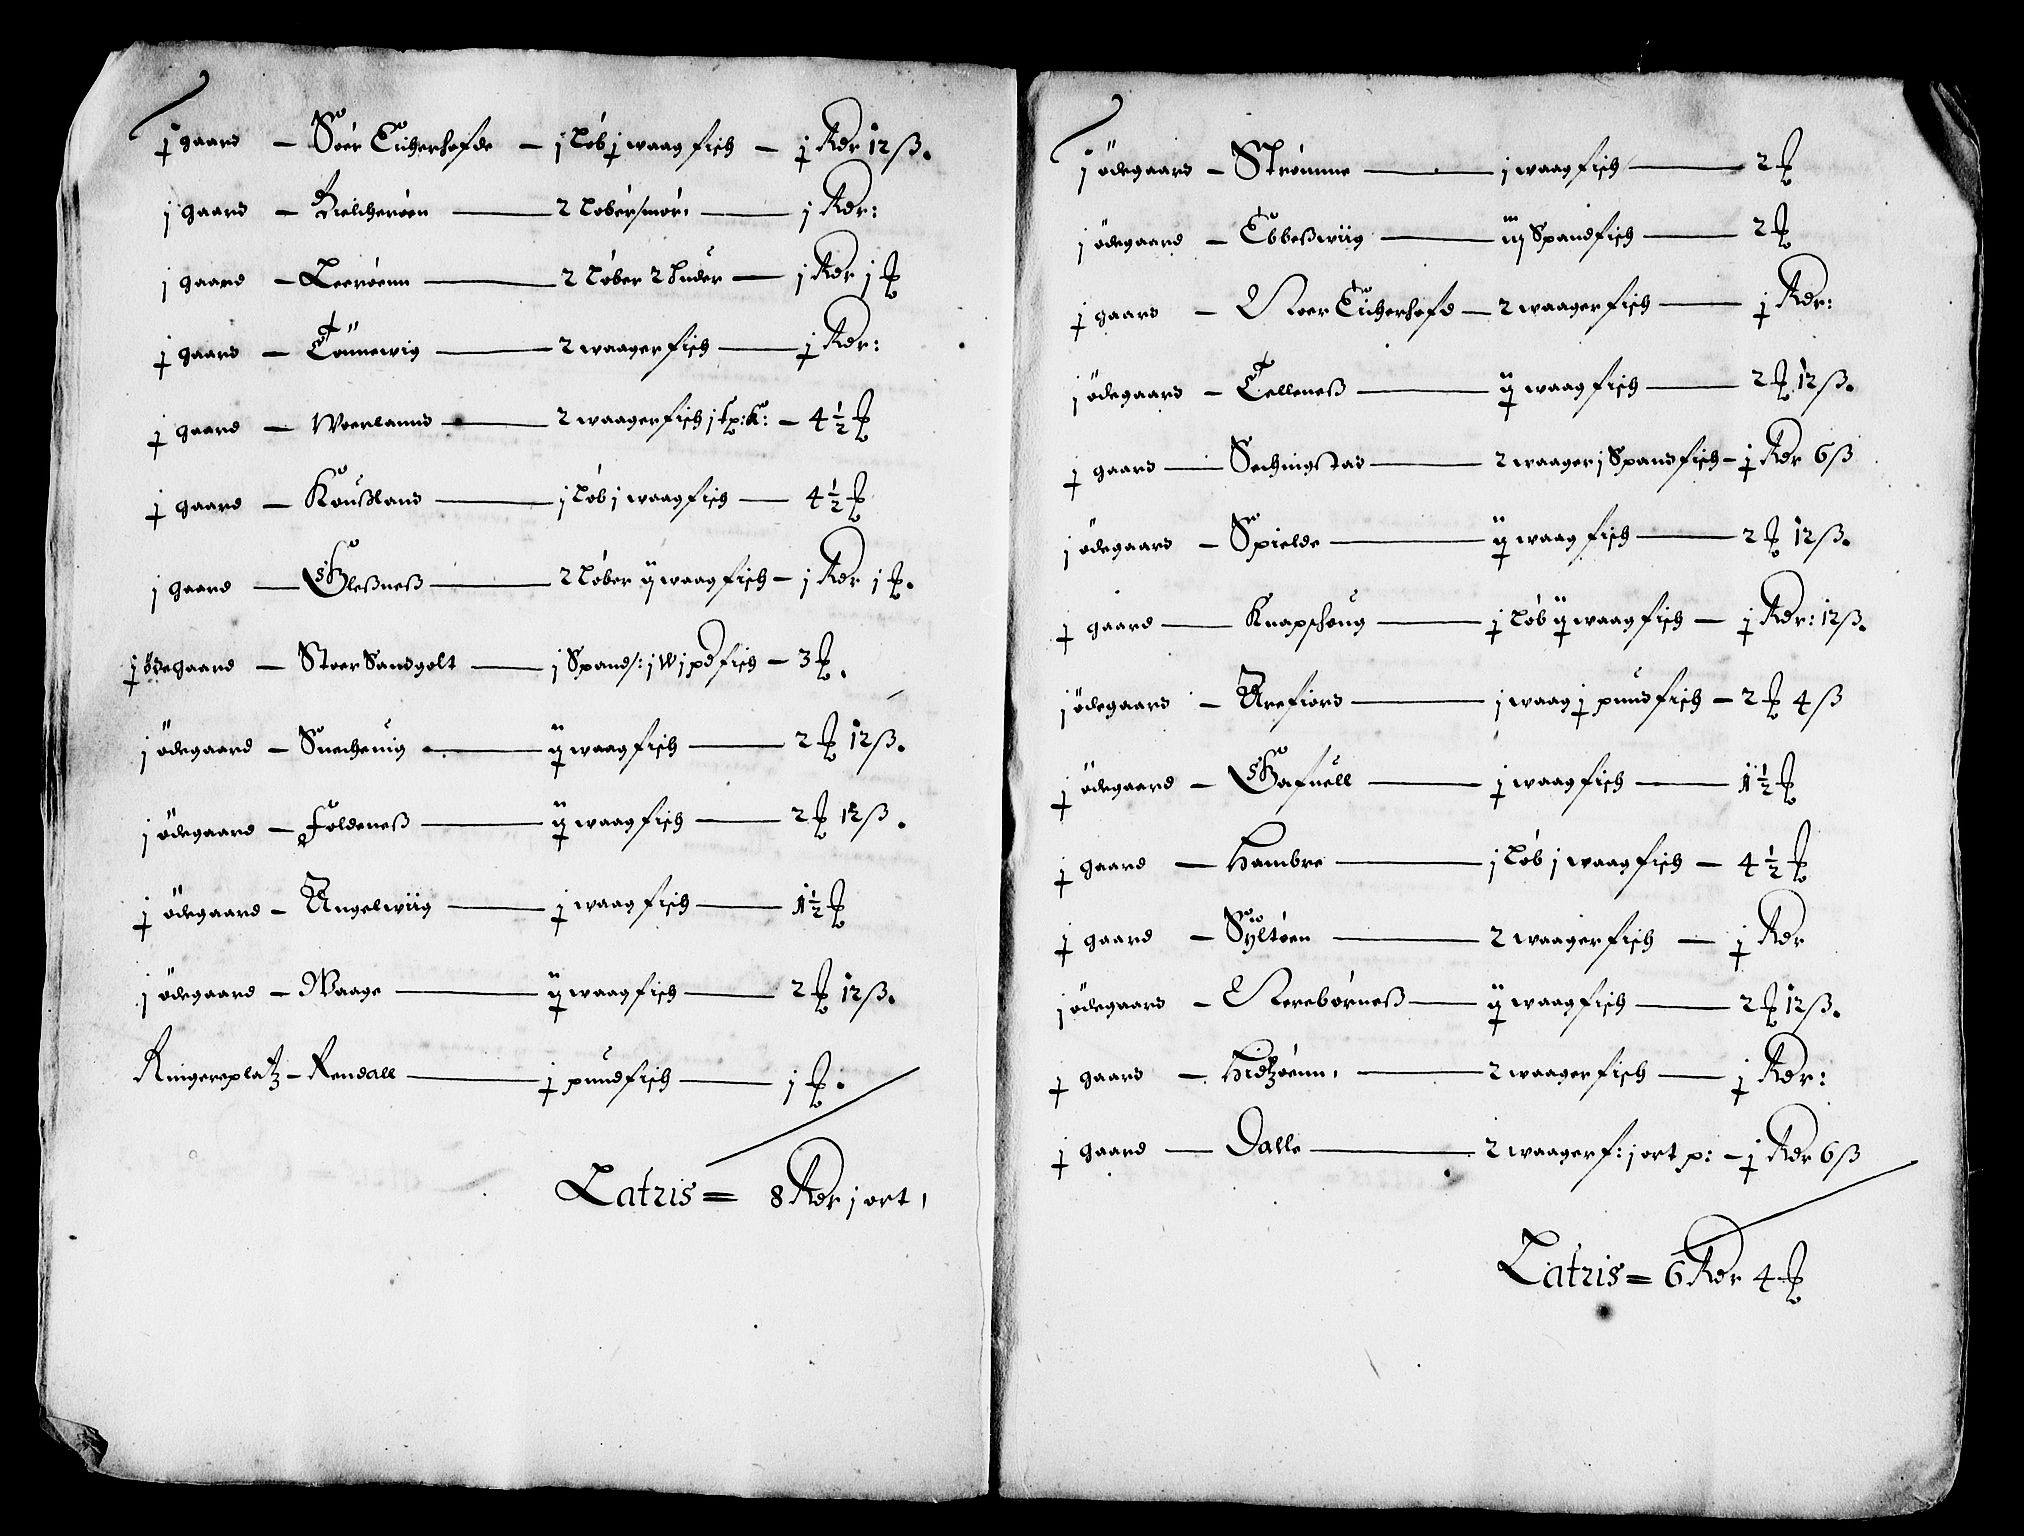 ½ gaard – Söer Eicherhofde – j Løb ½ waag fisch – ½ Rdr 12 ß.
j gaard – Bielcherøen – 2 Løber smør – j Rdr:
j gaard – Leerøenn – 2 Løber 2 huder – j Rdr j ℔
½ gaard – Tönnewig – 2 waager fisch – ½ Rdr:
½ gaard – Woerlannd – 2 waager fisch j kp: K: – 4½ ℔
½ gaard – Koußland – j Løb j waag fisch – 4½ ℔
j gaard – Gleßneß – 2 Løber ij waag fisch – j Rdr j ℔.
½ ödegaard – Stoer Sandgolt – j Spand s: j W j pd fisch – 3 ℔.
j ödegaard – Snecheuig – ij waag fisch – 2 ℔ 12 ß.
j ödegaard – Foldeneß – ij waag fisch – 2 ℔ 12 ß.
½ ödegaard – Angelwiig – ½ waag fisch – 1½ ℔
j ödegaard – Waage – ij waag fisch – 2 ℔ 12 ß.
Ringereplatz – Rendall – ½ pund fisch – j ℔.
Latris = 8 Rdr j ort
j ödegaard – Strømme – j waag fisch – 2 ℔
j ödegaard – Ebbeßwiig – iij Spand fisch – 2 ℔
½ gaard – Noer Eicherhofd – 2 waager fisch – ½ Rdr:
j ödegaard – Telleneß – ij waag fisch – 2 ℔ 12 ß.
½ gaard – Sechingstad – 2 waager j Spand fisch – ½ Rdr 6 ß
j ödegaard – Spielde – ij waag fisch – 2 ℔ 12 ß.
½ gaard – Knapschoug – ½ Løb ij waag fisch – ½ Rdr: 12 ß.
j ödegaard – Arefiord – j waag ½ pund fisch – 2 ℔ 4 ß
½ ödegaard – Gafuell – ½ waag fisch – 1½ ℔
½ gaard – Hambre – j Løb j waag fisch – 4½ ℔
½ gaard – Syltøen – 2 waager fisch – ½ Rdr
j ödegaard – Nerebørneß – ij waag fisch – 2 ℔ 12 ß.
½ gaard – Hidtzøenn – 2 waager fisch – ½ Rdr:
½ gaard – Dalle – 2 waager f: j ort p: – ½ Rdr 6 ß
Latris = 6 Rdr 4 ℔